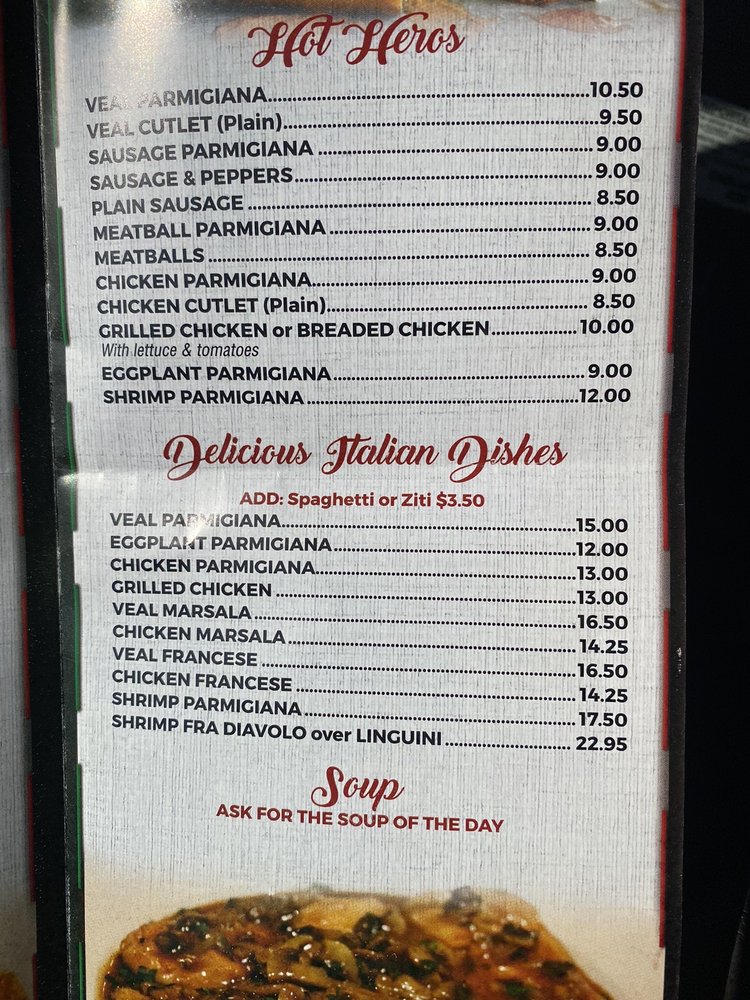 Hot Heros
VEAL PARMIGIANA..........10.50
VEAL CUTLET (Plain)..........9.50
SAUSAGE PARMIGIANA ..........9.00
SAUSAGE & PEPPERS..........9.00
PLAIN SAUSAGE .......... 8.50
MEATBALL PARMIGIANA ..........9.00
MEATBALLS .......... 8.50
CHICKEN PARMIGIANA..........9.00
CHICKEN CUTLET (Plain).......... 8.50
GRILLED CHICKEN or BREADED CHICKEN..........10.00
With lettuce & tomatoes
EGGPLANT PARMIGIANA.......... 9.00
SHRIMP PARMIGIANA ..........12.00
Delicious Italian Dishes
ADD: Spaghetti or Ziti $3.50
VEAL PARMIGIANA..........15.00
EGGPLANT PARMIGIANA..........12.00
CHICKEN PARMIGIANA..........13.00
GRILLED CHICKEN ..........13.00
VEAL MARSALA ..........16.50
CHICKEN MARSALA .......... 14.25
VEAL FRANCESE ..........16.50
CHICKEN FRANCESE .......... 14.25
SHRIMP PARMIGIANA .......... 17.50
SHRIMP FRA DIAVOLO over LINGUINI .......... 22.95
Soup
ASK FOR THE SOUP OF THE DAY